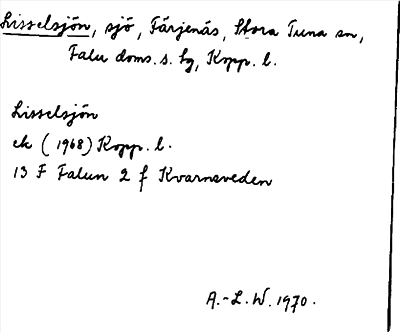 Lisselsjön, sjö, Färjenäs, Stora Tuna sn,
Falu doms. s. lg, Kopp. l.
Lisselsjön
ek (1968) Kopp. l.
13 F Falun 2 f Kvarnsveden
A.-L. W. 1970.